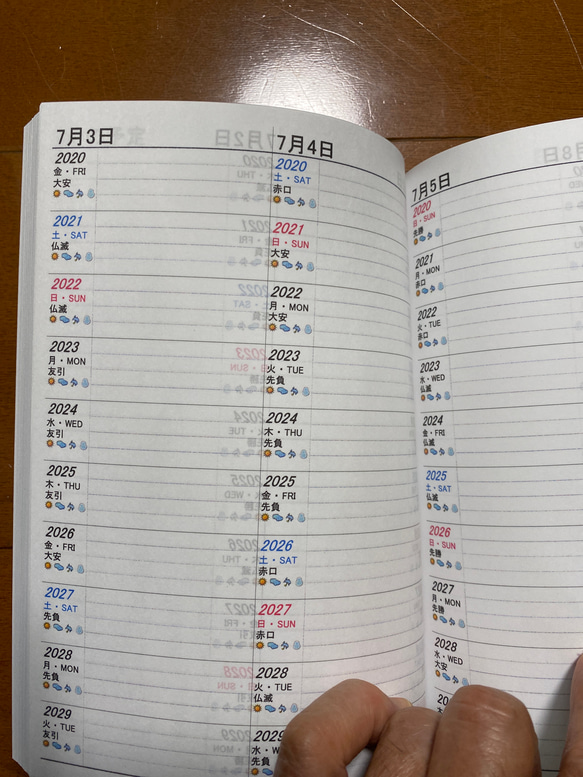 7月3日
2020
金・FRI
大安
2021
土・SAT
仏滅
2022
日・SUN
仏滅
2023
月・MON
友引
2024
水・WED
友引
2025
木・THU
友引
2026
金・FRI
大安
2027
土・SAT
先負
2028
月・MON
先負
2029
火・TUE
友引
7月4日
2020
土・SAT
赤口
2021
日・SUN
大安
2022
月・MON
大安
2023
火・TUE
先負
2024
木・THU
先負
2025
金・FRI
先負
2026
土・SAT
赤口
2027
日・SUN
赤口
2028
火・TUE
仏滅
2029
先負
7月5日
2020
日・SUN
先勝
2021
月・MON
赤口
2022
火・TUE
赤口
2023
水・WED
仏滅
2024
金・FRI
仏滅
2025
土・SAT
仏滅
2026
日・SUN
先勝
2027
月・MON
先勝
2028
水・WED
大安